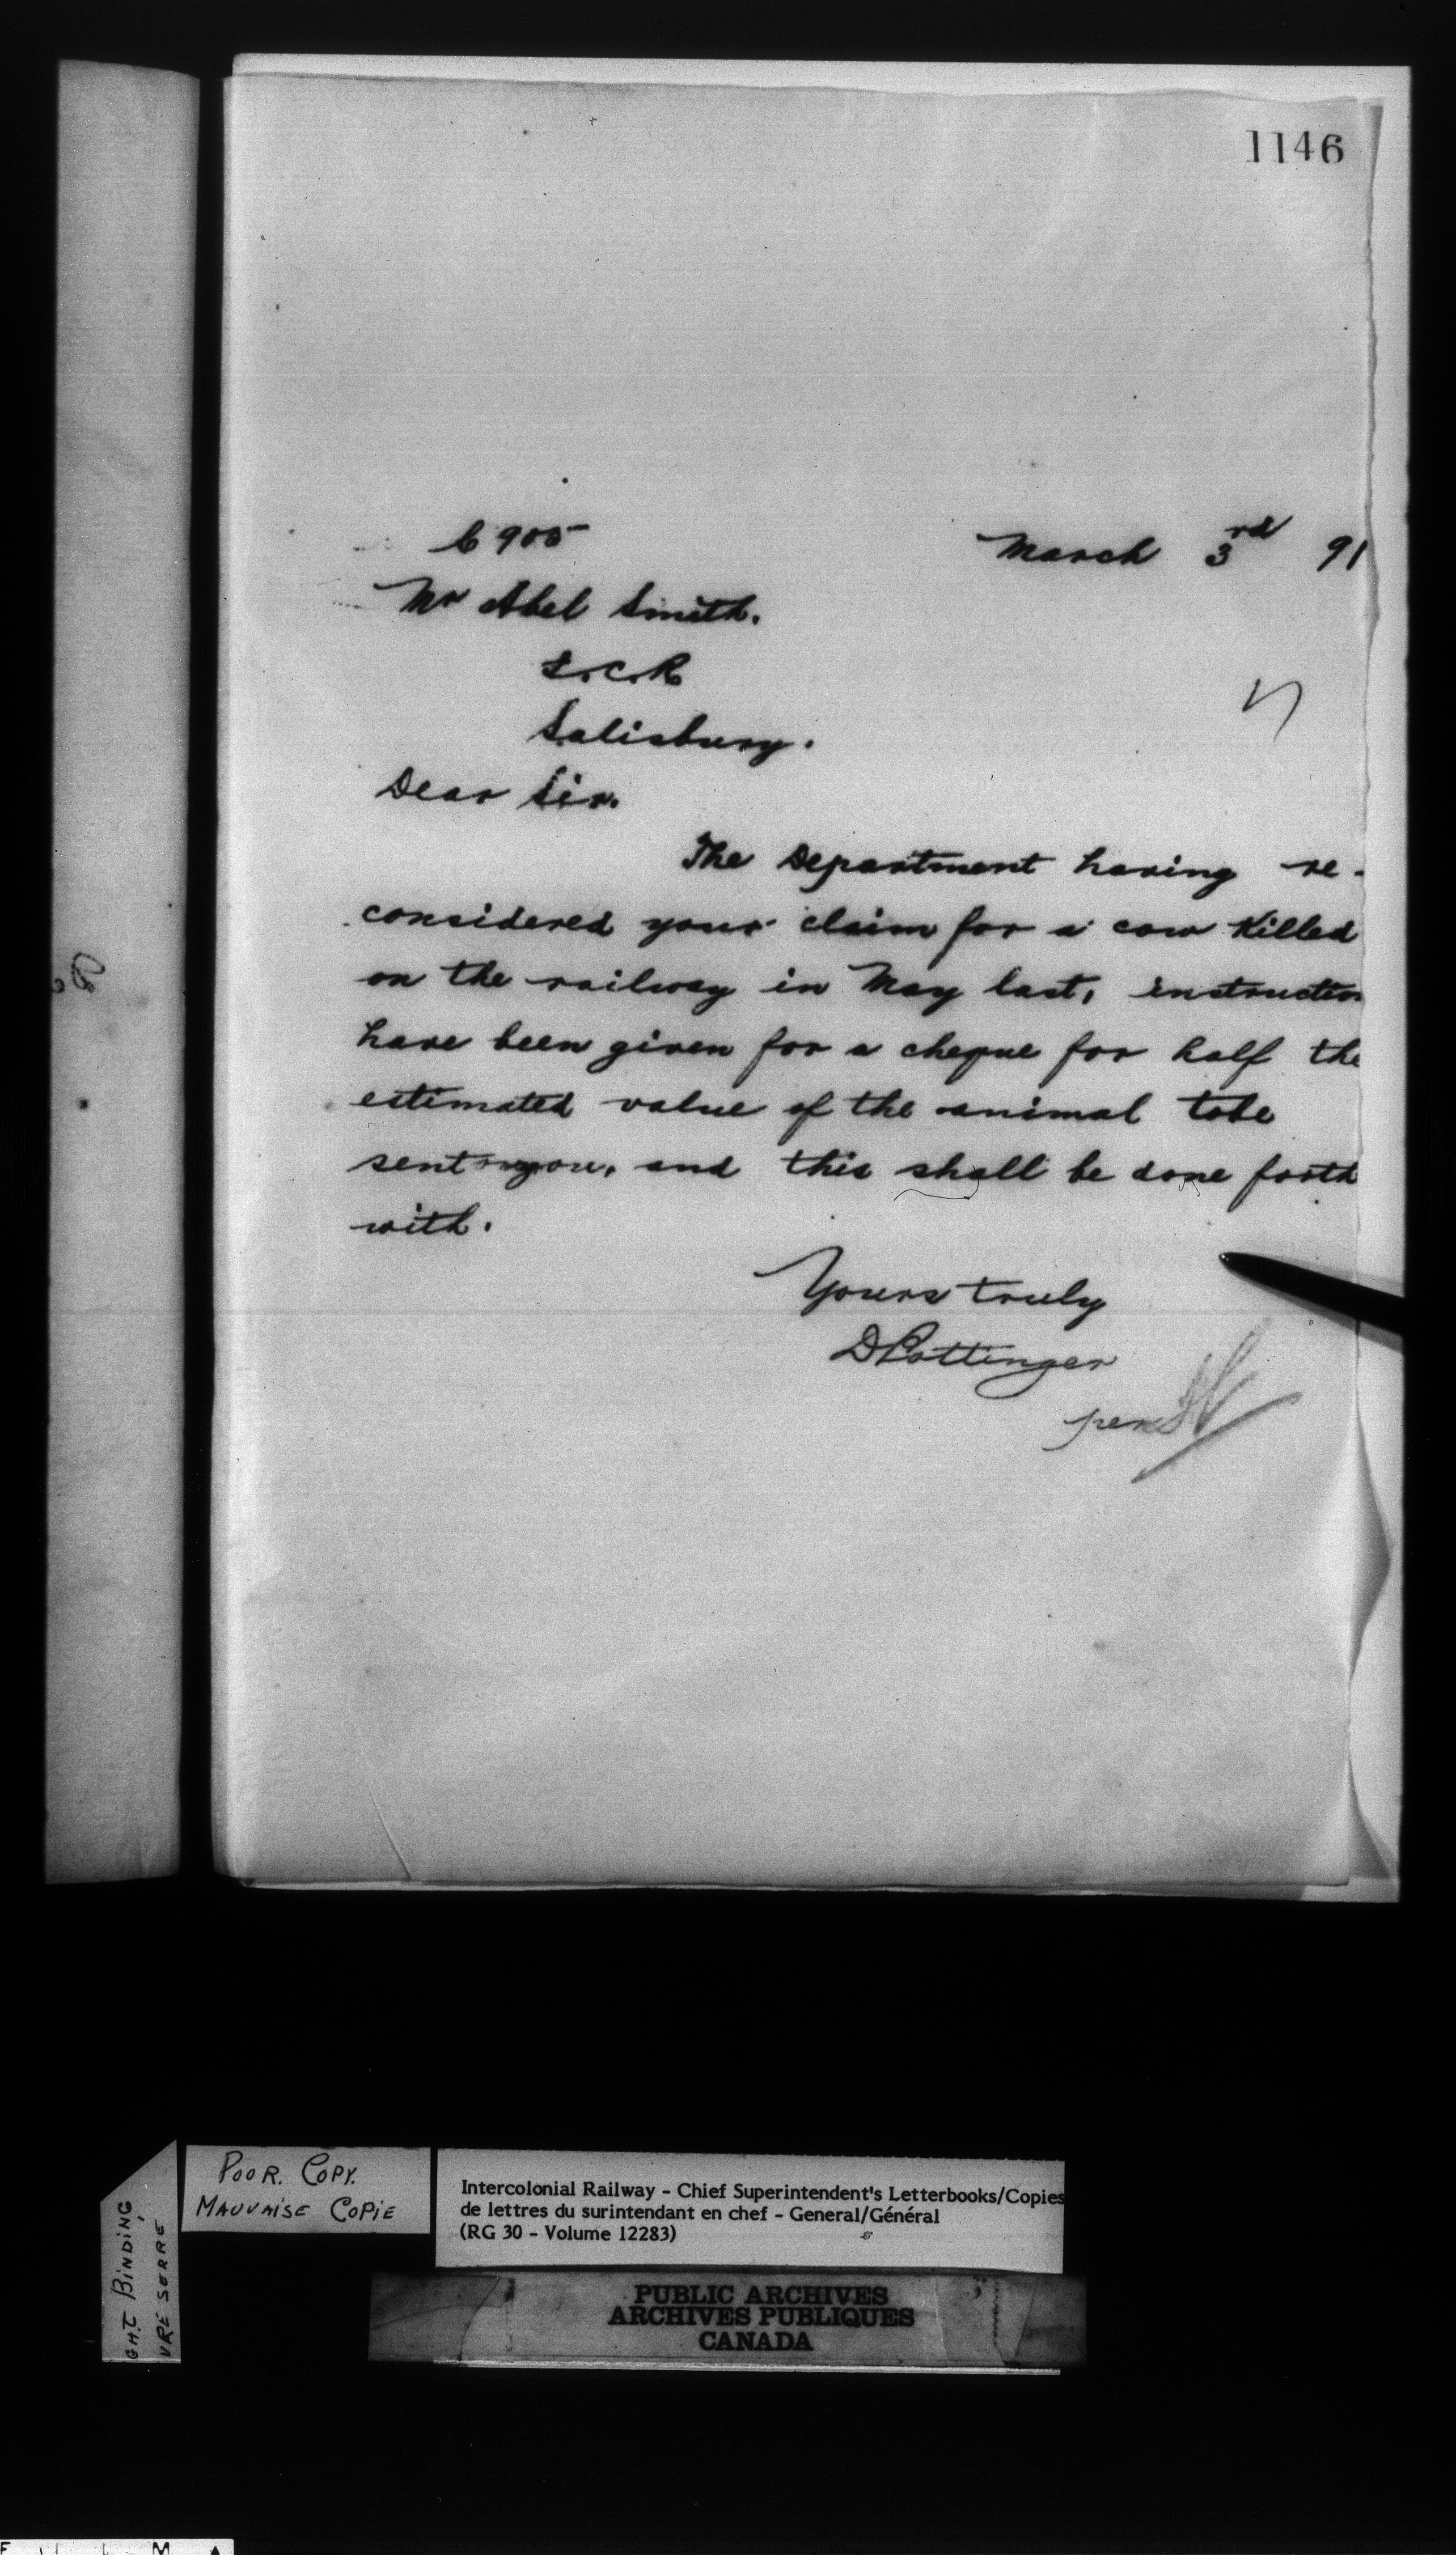 1146
6905
March 3rd 91
Mr Abel Smith.
I.C.R
Salisbury.
Dear Sir.
The Department having re-
considered your claim for a cow killed
on the railway in May last, instruction
have been given for a cheque for half the
estimated value of the animal to be
sent you, and this shall be done forth
with.
Yours truly
D Pottinger
per
POOR. COPY.
MAUVAISE COPIE
GHT BINDING
VRE SERRÉ
Intercolonial Railway - Chief Superintendent's Letterbooks/Copies
de lettres du surintendant en chef - General/Général
(RG 30 - Volume 12283)
PUBLIC ARCHIVES
ARCHIVES PUBLIQUES
CANADA